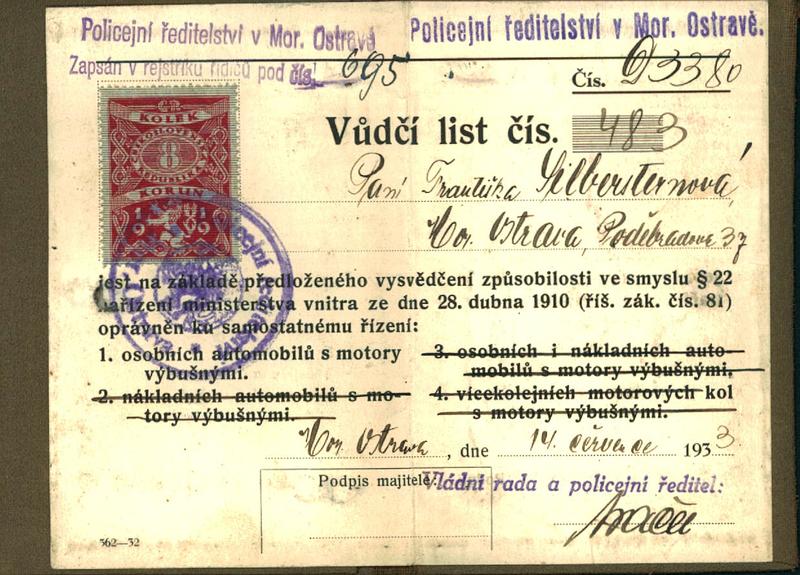 Policejní ředitelství v Mor. Ostravě
Policejní ředitelství v Mor. Ostravě.
Zapsán v rejstříku řidičů pod čís. 695
Čís. D3380
KOLEK
ČESKOSLOVENSKÁ
8
REPUBLIKA
KORUN
1919
Vůdčí list čís. 483
Paní Františka Silbersternová,
Mor. Ostrava, Poděbradova 37
jest na základě předloženého vysvědčení způsobilosti ve smyslu § 22
nařízení ministerstva vnitra ze dne 28. dubna 1910 (říš. zák. čís. 81)
oprávněn ku samostatnému řízení:
1. osobních automobilů s motory
výbušnými.
2. nákladních automobilů s mo-
tory výbušnými.
3. osobních i nákladních auto-
mobilů s motory výbušnými.
4. vícekolejních motorových kol
s motory výbušnými.
Mor. Ostrava, dne 14. července 1933
Podpis majitele:
Vládní rada a policejní ředitel:
362—32